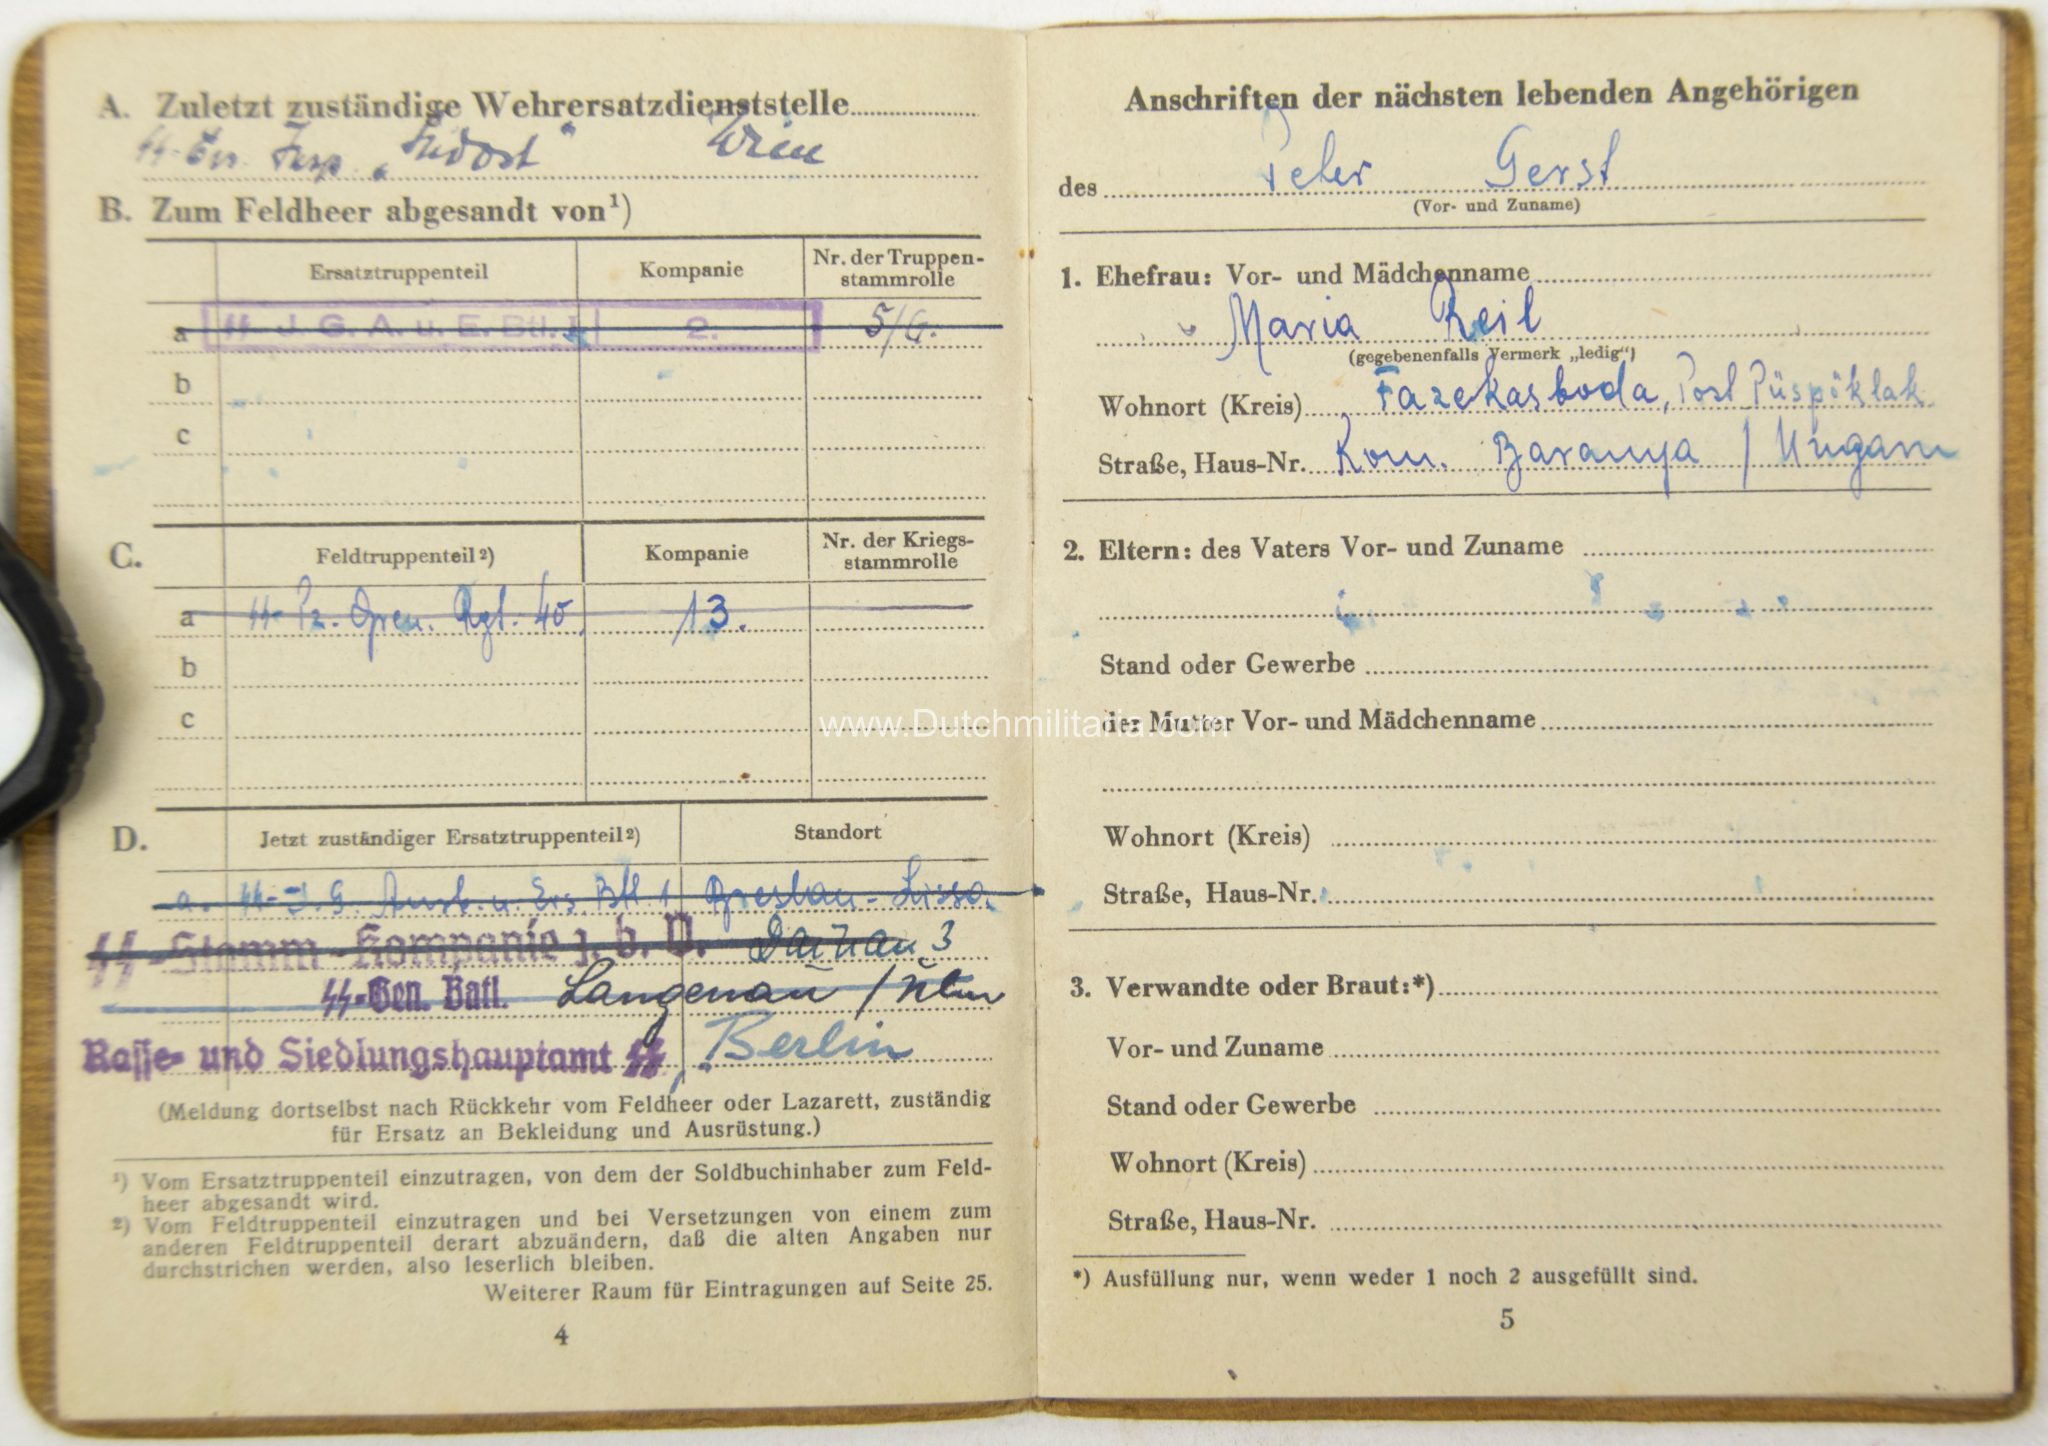 A. Zuletzt zuständige Wehrersatzdienststelle
ᛋᛋ-Ers. Insp. „Südost" Wien
B. Zum Feldheer abgesandt von¹)
Ersatztruppenteil Kompanie Nr. der Truppen-
stammrolle
a ᛋᛋ-J. G. A. u. E. Btl. 1 2. 5/G.
b
c
C. Feldtruppenteil²) Kompanie Nr. der Kriegs-
stammrolle
a ᛋᛋ-Pz. Gren. Rgt. 40. 13.
b
c
D. Jetzt zuständiger Ersatztruppenteil²) Standort
a. ᛋᛋ-J. G. Ausb. u. Ers. Btl. 1 Breslau-Lissa.
ᛋᛋ-Stamm-Kompanie z. b. V. 3
ᛋᛋ-Gen. Batl. Langenau / Ulm
Rasse- und Siedlungshauptamt ᛋᛋ, Berlin
(Meldung dortselbst nach Rückkehr vom Feldheer oder Lazarett, zuständig
für Ersatz an Bekleidung und Ausrüstung.)
¹) Vom Ersatztruppenteil einzutragen, von dem der Soldbuchinhaber zum Feld-
heer abgesandt wird.
²) Vom Feldtruppenteil einzutragen und bei Versetzungen von einem zum
anderen Feldtruppenteil derart abzuändern, daß die alten Angaben nur
durchstrichen werden, also leserlich bleiben.
Weiterer Raum für Eintragungen auf Seite 25.
4
Anschriften der nächsten lebenden Angehörigen
des Peter Gerst
(Vor- und Zuname)
1. Ehefrau: Vor- und Mädchenname
Maria Reil
(gegebenenfalls Vermerk „ledig")
Wohnort (Kreis) Fazekasboda, Post Püspöklak
Straße, Haus-Nr. Kom. Baranya / Ungarn
2. Eltern: des Vaters Vor- und Zuname
Stand oder Gewerbe
der Mutter Vor- und Mädchenname
Wohnort (Kreis)
Straße, Haus-Nr.
3. Verwandte oder Braut:*)
Vor- und Zuname
Stand oder Gewerbe
Wohnort (Kreis)
Straße, Haus-Nr.
*) Ausfüllung nur, wenn weder 1 noch 2 ausgefüllt sind.
5
www.Dutchmilitaria.com